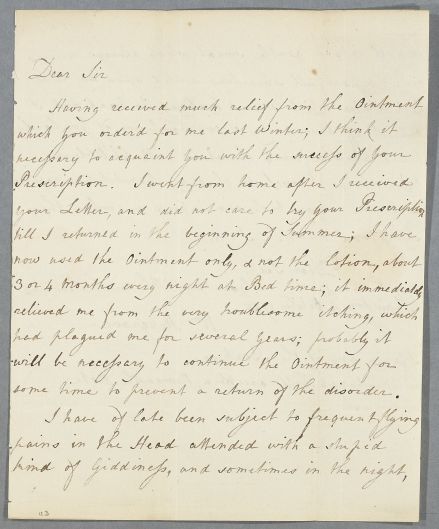 Dear Sir
Having received much relief from the Ointment
which you order'd for me last Winter; I think it
necessary to acquaint you with the success of your
Prescription. I went from home after I received
your Letter, and did not care to try your Prescription
till I returned in the beginning of Summer; I have
now used the Ointment only, & not the lotion, about
3 or 4 Months every night at Bed time; it immediately
relieved me from the very troublesome itching, which
had plagued me for several Years; probably it
will be necessary to continue the Ointment for
some time to prevent a return of the disorder.
I have of late been subject to frequent flying
pains in the Head attended with a stupid
kind of Giddiness, and sometimes in the night,